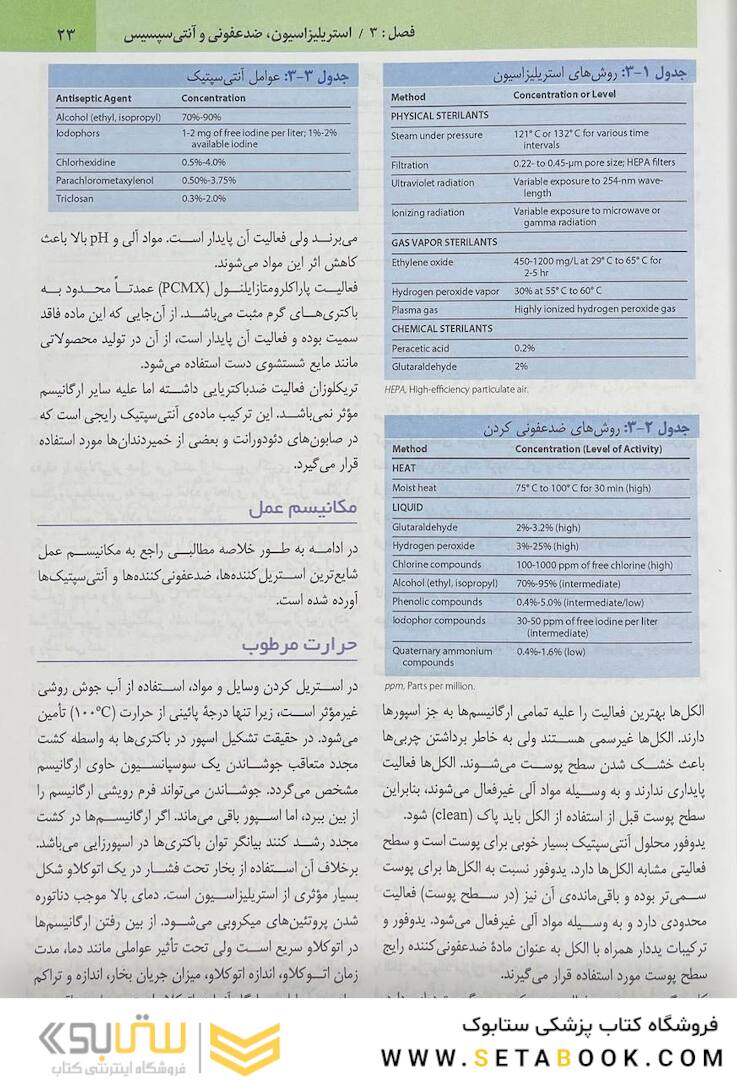 فصل : ۳ / استریلیزاسیون، ضدعفونی و آنتی‌سپسیس
۲۳
جدول ۱-۳: روش‌های استریلیزاسیون
Method Concentration or Level
PHYSICAL STERILANTS
Steam under pressure 121° C or 132° C for various time
intervals
Filtration 0.22- to 0.45-µm pore size; HEPA filters
Ultraviolet radiation Variable exposure to 254-nm wave-
length
Ionizing radiation Variable exposure to microwave or
gamma radiation
GAS VAPOR STERILANTS
Ethylene oxide 450-1200 mg/L at 29° C to 65° C for
2-5 hr
Hydrogen peroxide vapor 30% at 55° C to 60° C
Plasma gas Highly ionized hydrogen peroxide gas
CHEMICAL STERILANTS
Peracetic acid 0.2%
Glutaraldehyde 2%
HEPA, High-efficiency particulate air.
جدول ۲-۳: روش‌های ضدعفونی کردن
Method Concentration (Level of Activity)
HEAT
Moist heat 75° C to 100° C for 30 min (high)
LIQUID
Glutaraldehyde 2%-3.2% (high)
Hydrogen peroxide 3%-25% (high)
Chlorine compounds 100-1000 ppm of free chlorine (high)
Alcohol (ethyl, isopropyl) 70%-95% (intermediate)
Phenolic compounds 0.4%-5.0% (intermediate/low)
Iodophor compounds 30-50 ppm of free iodine per liter
(intermediate)
Quaternary ammonium 0.4%-1.6% (low)
compounds
ppm, Parts per million.
الکل‌ها بهترین فعالیت را علیه تمامی ارگانیسم‌ها به جز اسپورها
دارند. الکل‌ها غیرسمی هستند ولی به خاطر برداشتن چربی‌ها
باعث خشک شدن سطح پوست می‌شوند. الکل‌ها فعالیت
پایداری ندارند و به وسیله مواد آلی غیرفعال می‌شوند، بنابراین
سطح پوست قبل از استفاده از الکل باید پاک (clean) شود.
یدوفور محلول آنتی‌سپتیک بسیار خوبی برای پوست است و سطح
فعالیتی مشابه الکل‌ها دارد. یدوفور نسبت به الکل‌ها برای پوست
سمی‌تر بوده و باقی‌مانده‌ی آن نیز (در سطح پوست) فعالیت
محدودی دارد و به وسیله مواد آلی غیرفعال می‌شود. یدوفور و
ترکیبات یددار همراه با الکل به عنوان مادهٔ ضدعفونی‌کننده رایج
سطح پوست مورد استفاده قرار می‌گیرند.
جدول ۳-۳: عوامل آنتی‌سپتیک
Antiseptic Agent Concentration
Alcohol (ethyl, isopropyl) 70%-90%
Iodophors 1-2 mg of free iodine per liter; 1%-2%
available iodine
Chlorhexidine 0.5%-4.0%
Parachlorometaxylenol 0.50%-3.75%
Triclosan 0.3%-2.0%
می‌برند ولی فعالیت آن پایدار است. مواد آلی و pH بالا باعث
کاهش اثر این مواد می‌شوند.
فعالیت پاراکلرومتازایلنول (PCMX) عمدتاً محدود به
باکتری‌های گرم مثبت می‌باشد. از آن‌جایی که این ماده فاقد
سمیت بوده و فعالیت آن پایدار است، از آن در تولید محصولاتی
مانند مایع شستشوی دست استفاده می‌شود.
تریکلوزان فعالیت ضدباکتریایی داشته اما علیه سایر ارگانیسم
مؤثر نمی‌باشد. این ترکیب ماده‌ی آنتی‌سپتیک رایجی است که
در صابون‌های دئودورانت و بعضی از خمیردندان‌ها مورد استفاده
قرار می‌گیرد.
مکانیسم عمل
در ادامه به طور خلاصه مطالبی راجع به مکانیسم عمل
شایع‌ترین استریل‌کننده‌ها، ضدعفونی‌کننده‌ها و آنتی‌سپتیک‌ها
آورده شده است.
حرارت مرطوب
در استریل کردن وسایل و مواد، استفاده از آب جوش روشی
غیرمؤثر است، زیرا تنها درجهٔ پائینی از حرارت (۱۰۰°C) تأمین
می‌شود. در حقیقت تشکیل اسپور در باکتری‌ها به واسطه کشت
مجدد متعاقب جوشاندن یک سوسپانسیون حاوی ارگانیسم
مشخص می‌گردد. جوشاندن می‌تواند فرم رویشی ارگانیسم را
از بین ببرد، اما اسپور باقی می‌ماند. اگر ارگانیسم‌ها در کشت
مجدد رشد کنند بیانگر توان باکتری‌ها در اسپورزایی می‌باشد.
برخلاف آن استفاده از بخار تحت فشار در یک اتوکلاو شکل
بسیار مؤثری از استریلیزاسیون است. دمای بالا موجب دناتوره
شدن پروتئین‌های میکروبی می‌شود. از بین رفتن ارگانیسم‌ها
در اتوکلاو سریع است ولی تحت تأثیر عواملی مانند دما، مدت
زمان اتوکلاو، اندازه اتوکلاو، میزان جریان بخار، اندازه و تراکم
فروشگاه کتاب پزشکی ستابوک
WWW.SETABOOK.COM
ستابوک
فروشگاه اینترنتی کتاب